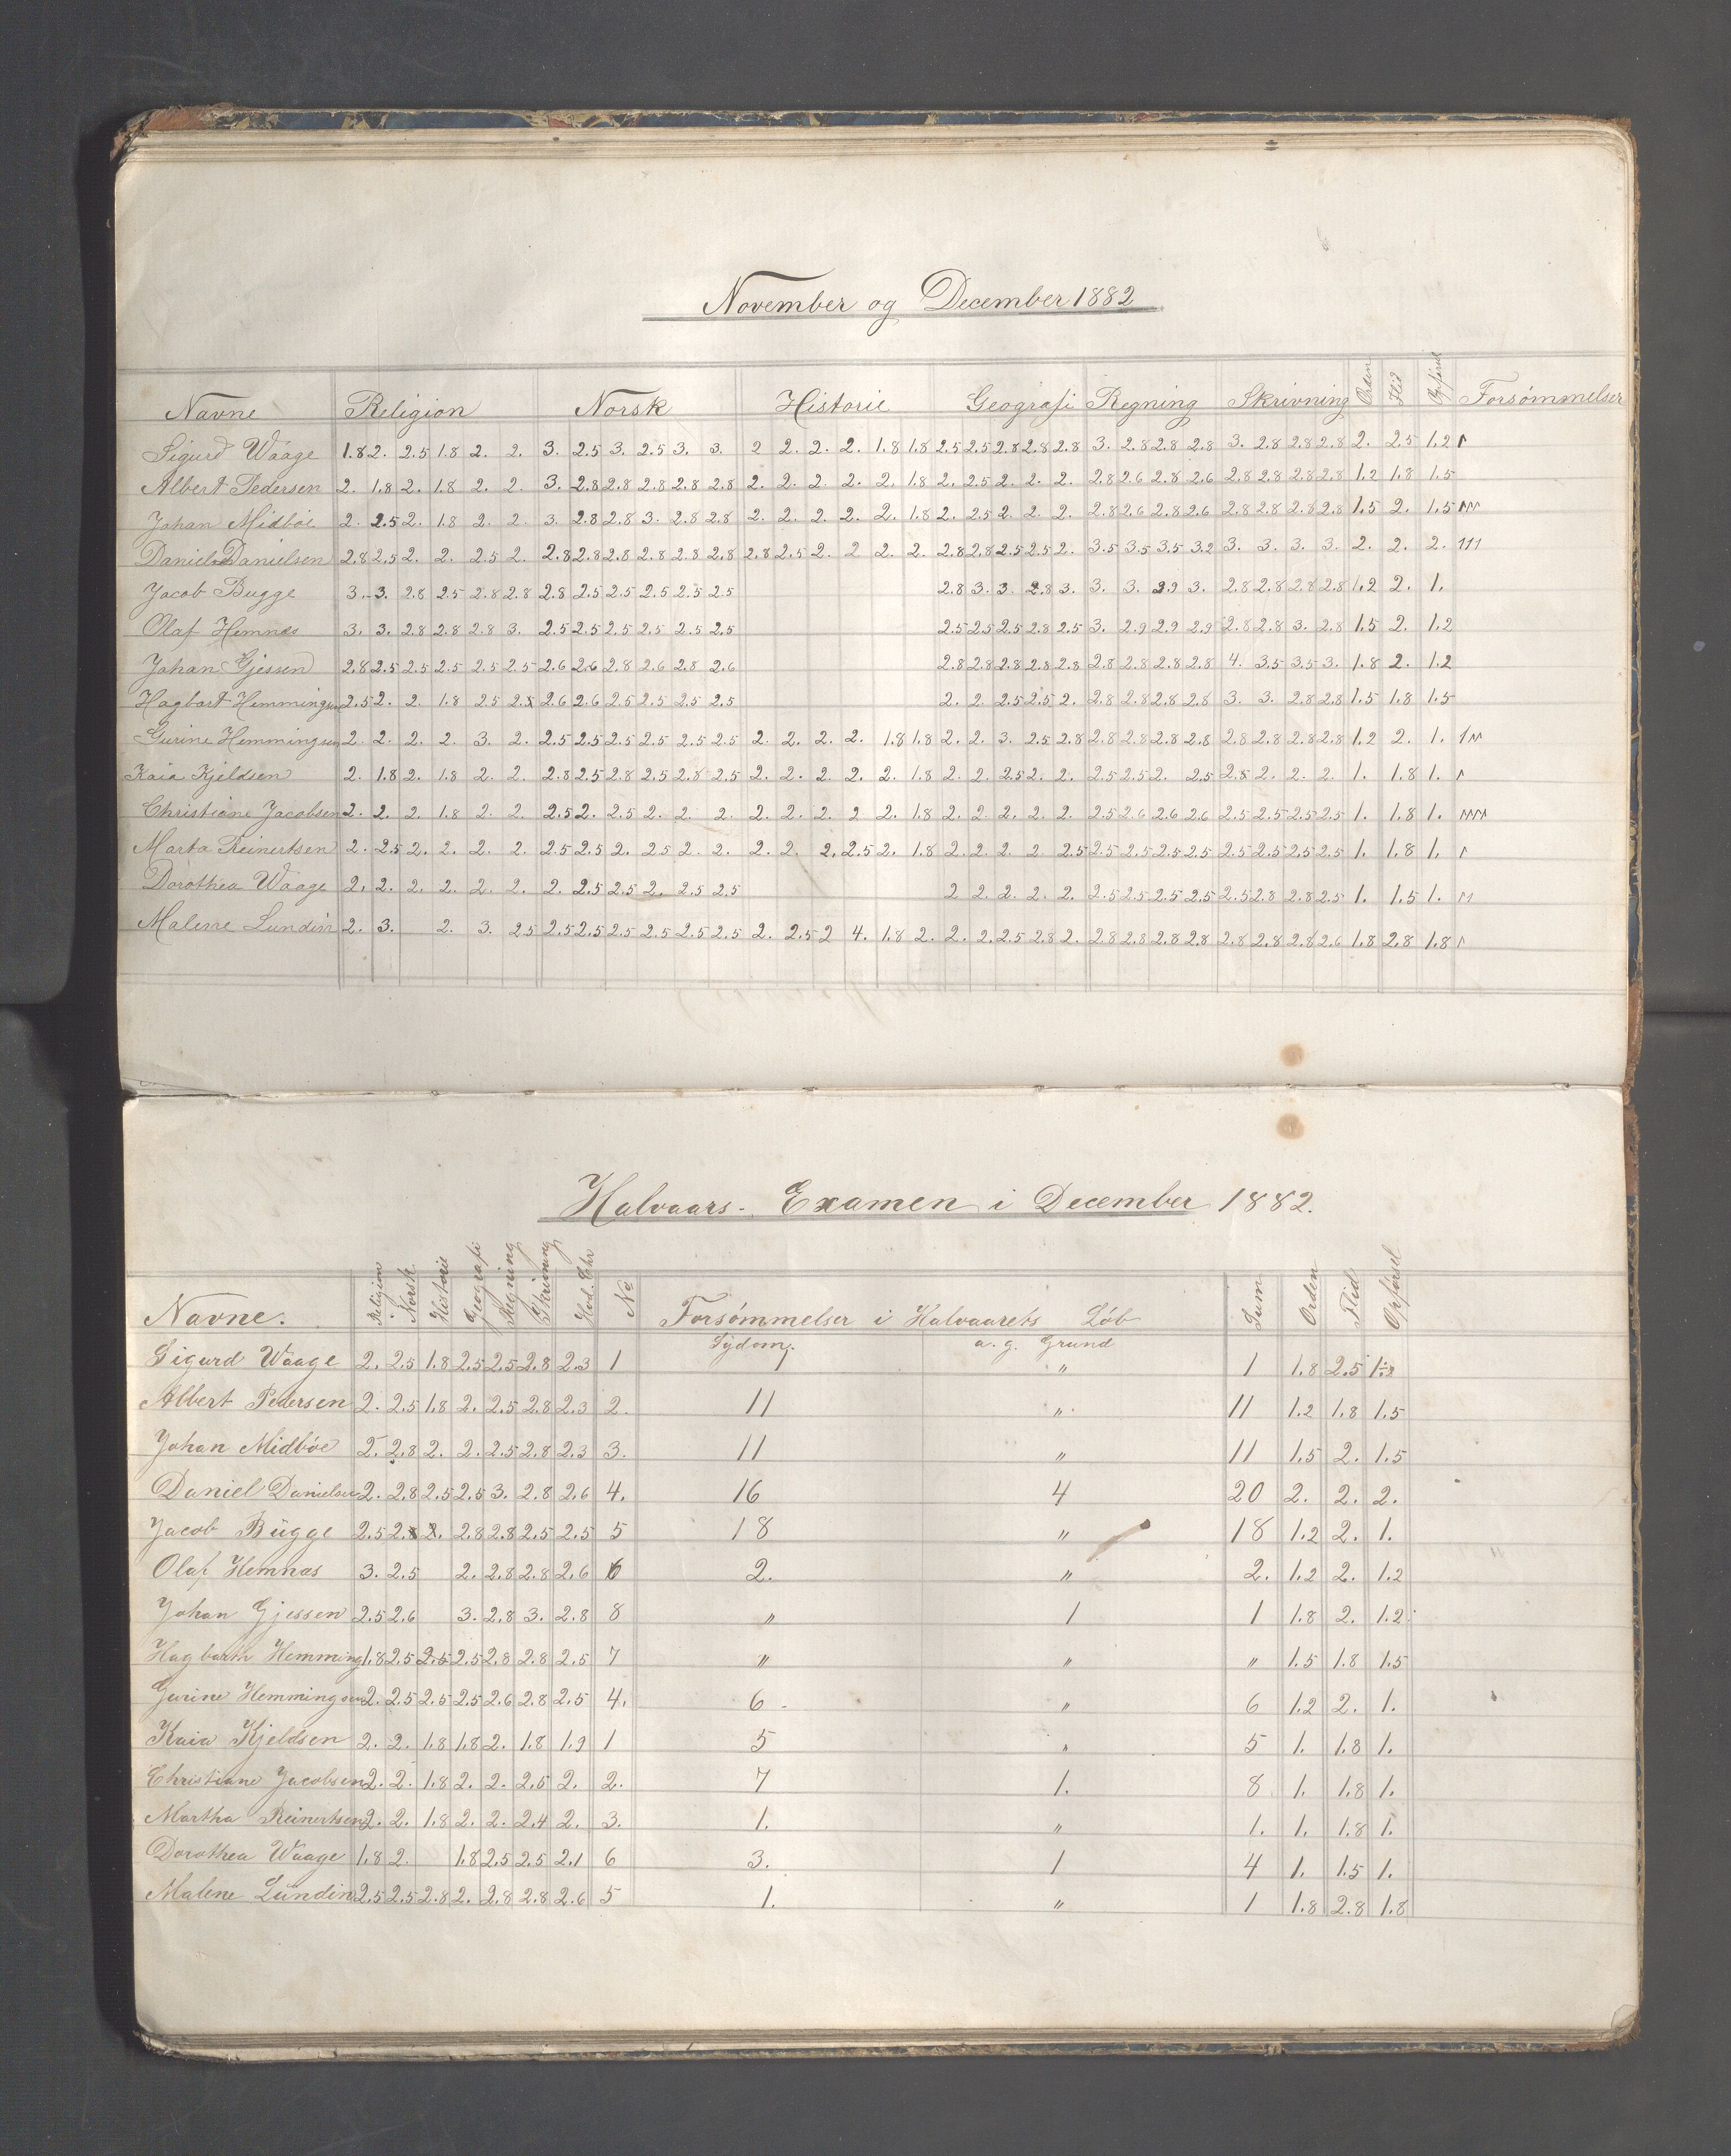 November og December 1882
Navne Religion Norsk Historie Geografi Regning Skrivning Orden Flid Opførsel Forsømmelser
Sigurd Waage 1.8 2. 2.5 1.8 2. 2. 3. 2.5 3. 2.5 3. 3. 2 2. 2. 2. 1.8 1.8 2.5 2.5 2.8 2.8 2.8 3. 2.8 2.8 2.8 3. 2.8 2.8 2.8 2. 2.5 1.2 1
Albert Pedersen 2. 1.8 2. 1.8 2. 2. 3. 2.8 2.8 2.8 2.8 2.8 2. 2. 2. 2. 2. 1.8 2. 2.5 2. 2. 2. 2.8 2.6 2.8 2.6 2.8 2.8 2.8 2.8 1.2 1.8 1.5
Johan Midbøe 2. 2.5 2. 1.8 2. 2. 3. 2.8 2.8 3. 2.8 2.8 2. 2. 2. 2. 2. 1.8 2. 2.5 2. 2. 2. 2.8 2.6 2.8 2.6 2.8 2.8 2.8 2.8 1.5 2. 1.5 111
Daniel Danielsen 2.8 2.5 2. 2. 2.5 2. 2.8 2.8 2.8 2.8 2.8 2.8 2.8 2.5 2. 2 2. 2. 2.8 2.8 2.5 2.5 2. 3.5 3.5 3.5 3.2 3. 3. 3. 3. 2. 2. 2. 111
Jacob Bugge 3. 3. 2.8 2.5 2.8 2.8 2.8 2.5 2.5 2.5 2.5 2.5 2.8 3. 3. 2.8 3. 3. 3. 2.9 3. 2.8 2.8 2.8 2.8 1.2 2. 1.
Olaf Hemnæs 3. 3. 2.8 2.8 2.8 3. 2.5 2.5 2.5 2.5 2.5 2.5 2.5 2.5 2.5 2.8 2.5 3. 2.9 2.9 2.9 2.8 2.8 3. 2.8 1.5 2. 1.2
Johan Gjessen 2.8 2.5 2.5 2.5 2.5 2.5 2.6 2.6 2.8 2.6 2.8 2.6 2.8 2.8 2.8 2.8 2.8 2.8 2.8 2.8 2.8 4. 3.5 3.5 3. 1.8 2. 1.2
Hagbart Hemmingsen 2.5 2. 2. 1.8 2.5 2.5 2.6 2.6 2.5 2.5 2.5 2.5 2. 2. 2.5 2.5 2. 2.8 2.8 2.8 2.8 3. 3. 2.8 2.8 1.5 1.8 1.5
Gurine Hemmingsen 2. 2. 2. 2. 3. 2. 2.5 2.5 2.5 2.5 2.5 2.5 2. 2. 2. 2. 1.8 1.8 2. 2. 3. 2.5 2.8 2.8 2.8 2.8 2.8 2.8 2.8 2.8 2.8 1.2 2. 1. 111
Kaia Kjeldsen 2. 1.8 2. 1.8 2. 2. 2.8 2.5 2.8 2.5 2.8 2.5 2. 2. 2. 2. 2. 1.8 2. 2. 2.5 2. 2. 2.5 2.5 2. 2.5 2.8 2. 2. 2. 1. 1.8 1. 1
Christiane Jacobsen 2. 2. 2. 1.8 2. 2. 2.5 2. 2.5 2. 2. 2. 2. 2. 2. 2 2. 1.8 2. 2. 2. 2. 2. 2.5 2.6 2.6 2.6 2.5 2.5 2.5 2.5 1. 1.8 1. 1111
Marta Reinertsen 2. 2.5 2. 2. 2. 2. 2.5 2.5 2. 2.5 2. 2. 2. 2. 2. 2.5 2. 1.8 2. 2. 2. 2. 2.5 2.5 2.5 2.5 2.5 2.5 2.5 2.5 2.5 1. 1.8 1. 1
Dorothea Waage 2. 2. 2. 2. 2. 2. 2. 2.5 2.5 2. 2.5 2.5 2 2. 2. 2. 2. 2.5 2.5 2.5 2.5 2.5 2.8 2.8 2.5 1. 1.5 1. 11
Malene Lundin 2. 3. 2. 3. 2.5 2.5 2.5 2.5 2.5 2.5 2.5 2. 2.5 2 4. 1.8 2. 2. 2. 2.5 2.8 2. 2.8 2.8 2.8 2.8 2.8 2.8 2.8 2.6 1.8 2.8 1.8 1
Halvaars-Examen i December 1882.
Navne. Religion Norsk. Historie Geografi Regning Skrivning Hod. Chr No Forsømmelser i Halvaarets Løb Sum Orden Flid Opførsel
Sygdom. a. g. Grund
Sigurd Waage 2. 2.5 1.8 2.5 2.5 2.8 2.3 1 1 " 1 1.8 2.5 1.2
Albert Pedersen 2. 2.5 1.8 2. 2.5 2.8 2.3 2. 11 " 11 1.2 1.8 1.5
Johan Midbøe 2. 2.8 2. 2. 2.5 2.8 2.3 3. 11 " 11 1.5 2. 1.5
Daniel Danielsen 2. 2.8 2.5 2.5 3. 2.8 2.6 4. 16 4 20 2. 2. 2.
Jacob Bugge 2.5 2.8 2. 2.8 2.8 2.5 2.5 5 18 " 18 1.2 2. 1.
Olaf Hemnæs 3. 2.5 2. 2.8 2.8 2.6 6 2. " 2. 1.2 2. 1.2
Johan Gjessen 2.5 2.6 3. 2.8 3. 2.8 8 " 1 1 1.8 2. 1.2
Hagbarth Hemming 1.8 2.5 2.5 2.5 2.8 2.8 2.5 7 " " " 1.5 1.8 1.5
Gurine Hemmingsen 2. 2.5 2.5 2.5 2.6 2.8 2.5 4. 6 " 6 1.2 2. 1.
Kaia Kjeldsen 2. 2. 1.8 1.8 2. 1.8 1.9 1 5 " 5 1. 1.8 1.
Christiane Jacobsen 2. 2. 1.8 2. 2. 2.5 2. 2. 7 1. 8 1. 1.8 1.
Martha Reinertsen 2. 2. 1.8 2. 2. 2.4 2. 3. 1. " 1. 1. 1.8 1.
Dorothea Waage 1.8 2. 1.8 2.5 2.5 2.1 6 3. 1 4 1. 1.5 1.
Malene Lundin 2.5 2.5 2.8 2. 2.8 2.8 2.6 5 1. " 1 1.8 2.8 1.8